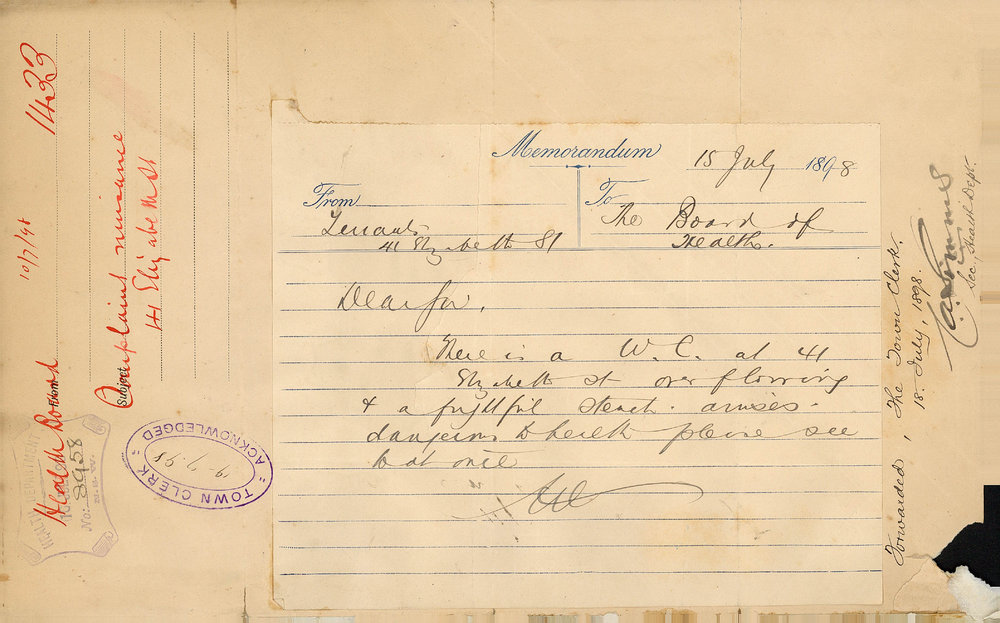 1433
10/7/98
From
Health Board
Subject
Complains nuisance
41 Elizabeth St
HEALTH DEPARTMENT
No: 8958
N. S. W.
TOWN CLERK
19.7.98
ACKNOWLEDGED
Memorandum
15 July 1898
From
Tenants
41 Elizabeth St
To
The Board of
Health.
Dear Sir,
There is a W. C. at 41
Elizabeth St overflowing
& a frightful stench. arises.
dangerous to health please see
to at once
Forwarded, The Town Clerk.
18. July, 1898.
Sec., Health Dept.